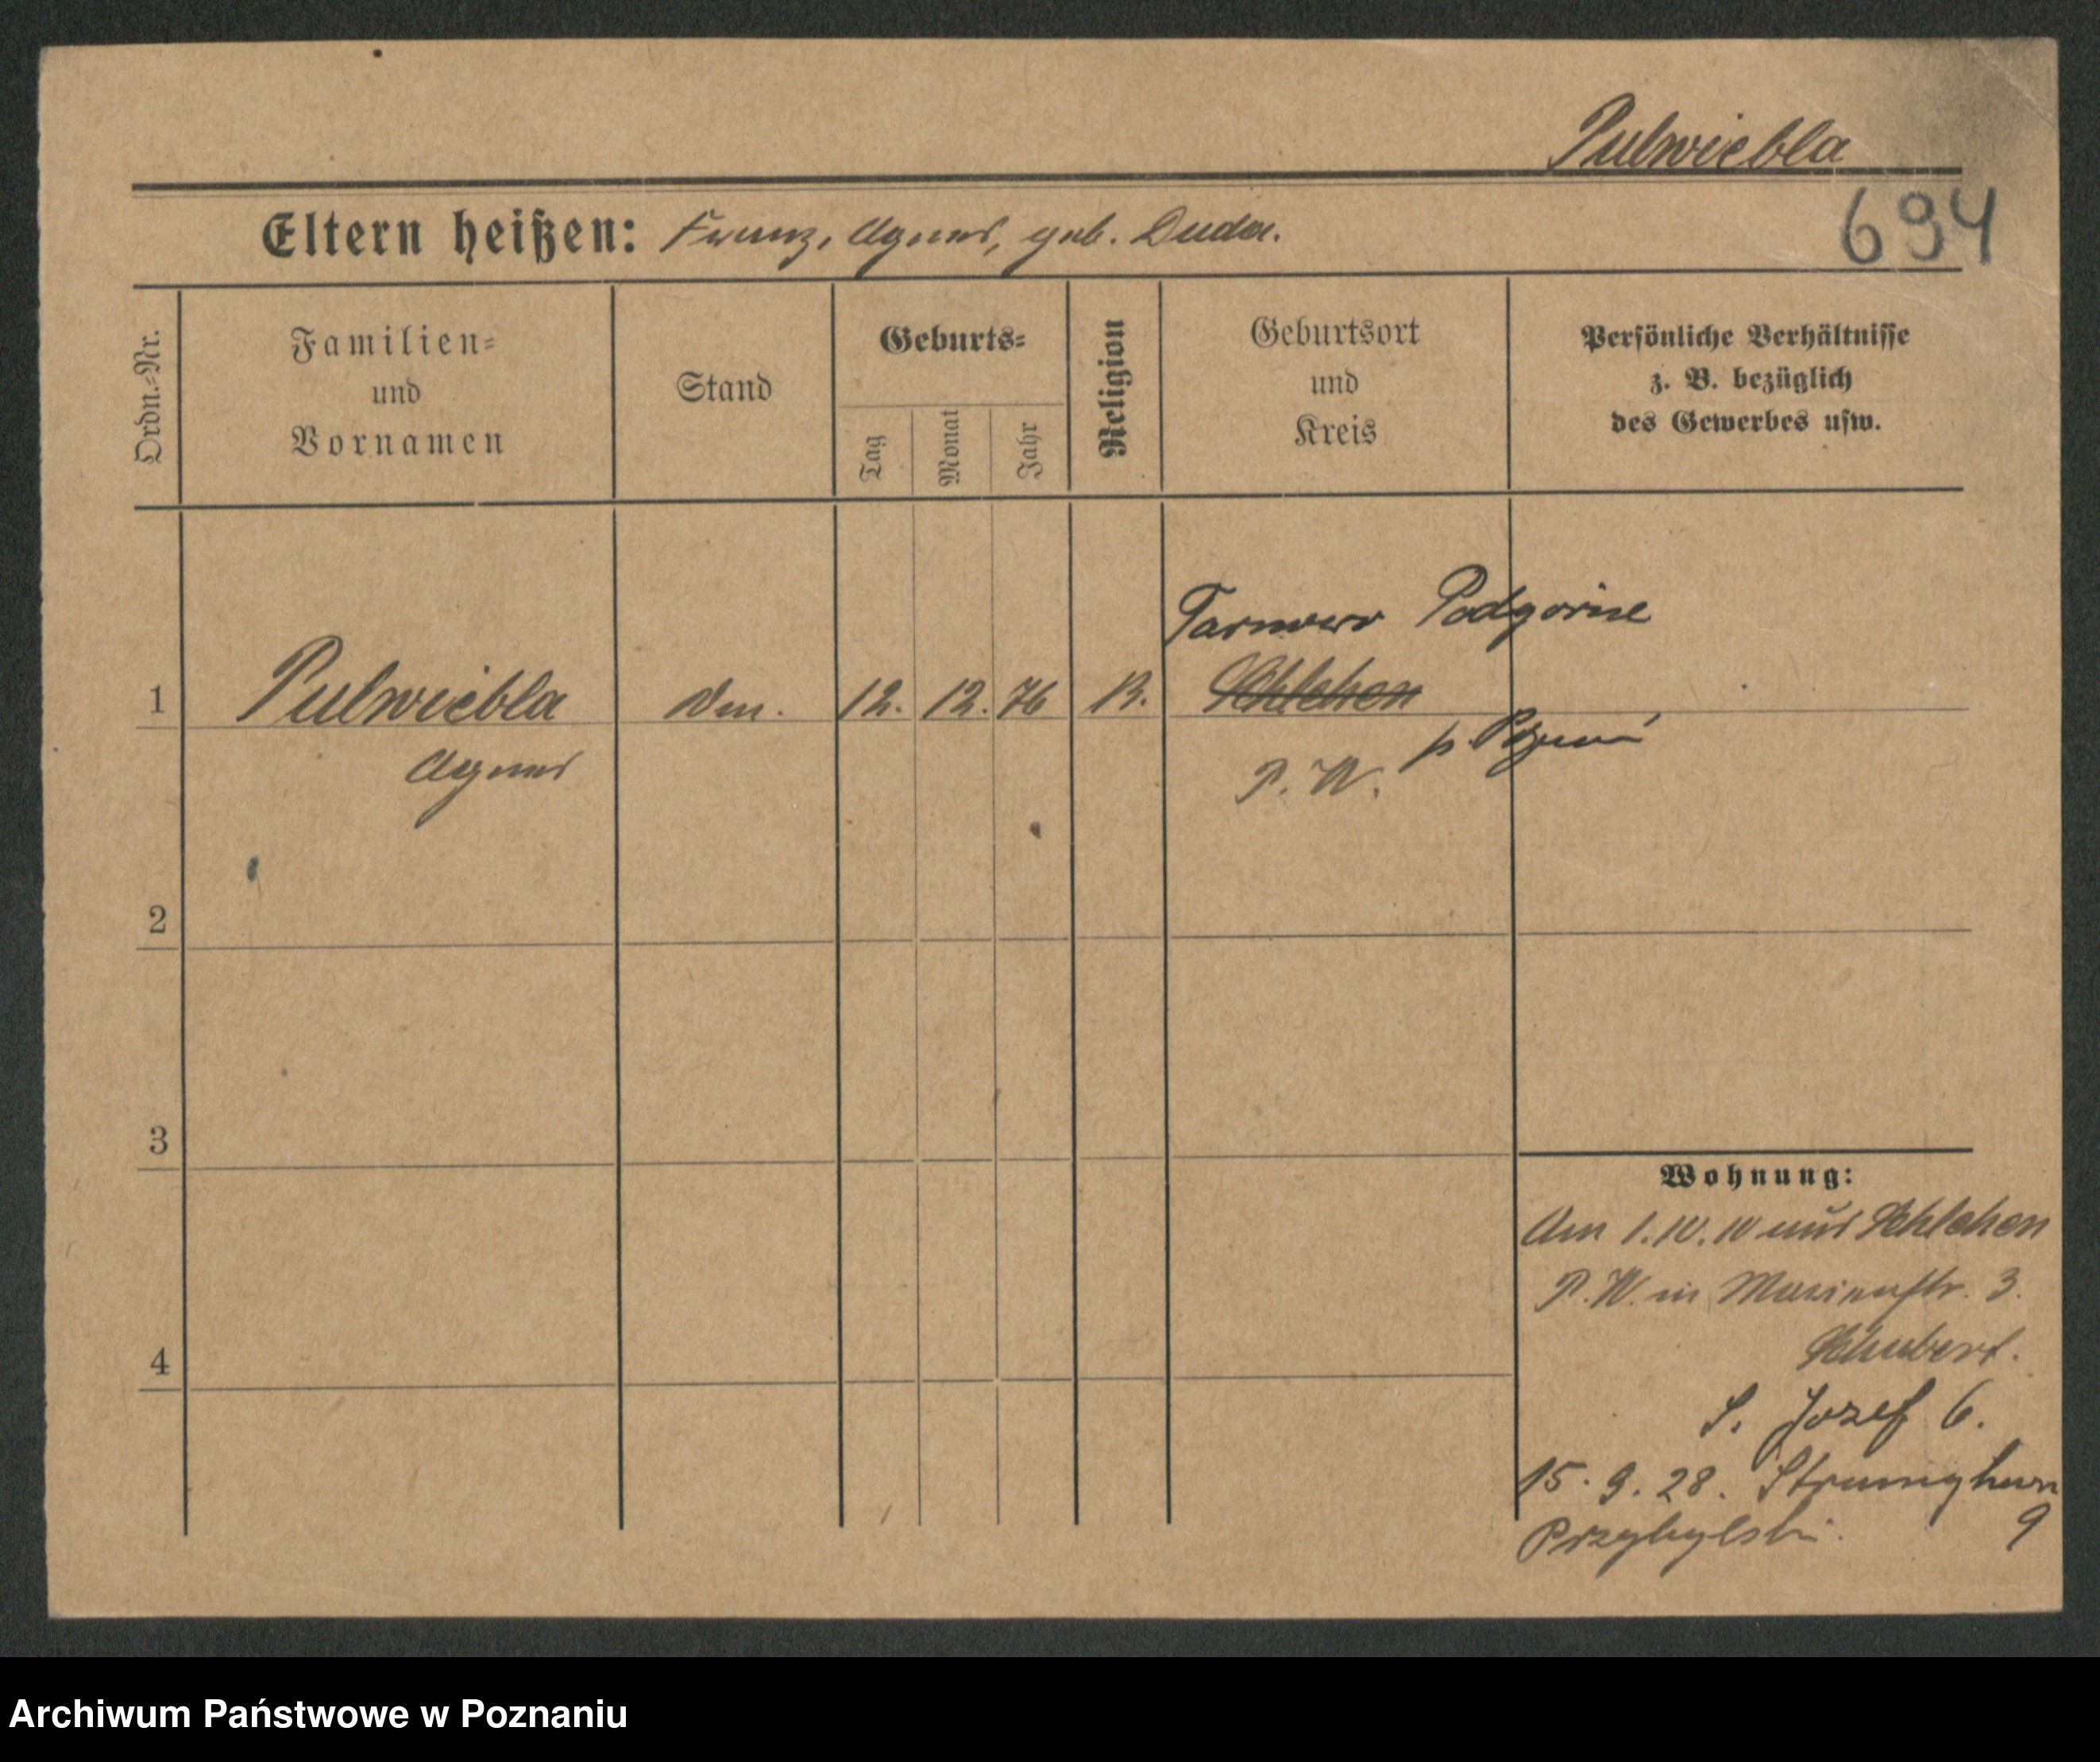 Pulwiebla
694
Eltern heißen: Franz, Agnes, geb. Duda.
Ordn.-Nr.
Familien-
und
Vornamen
Stand
Geburts-
Tag
Monat
Jahr
Religion
Geburtsort
und
Kreis
Persönliche Verhältnisse
z. B. bezüglich
des Gewerbes usw.
Tarnowo Podgórne
1 Pulwiebla 12. 12. 76 Schlehen
Agnes
P. W. p. Poznań
2
3
4
Wohnung:
Am 1.10.10 aus Schlehen
P. W. in Marienstr. 3.
Schubert.
S. Jozef 6.
15. 9. 28.
9
Przybylski.